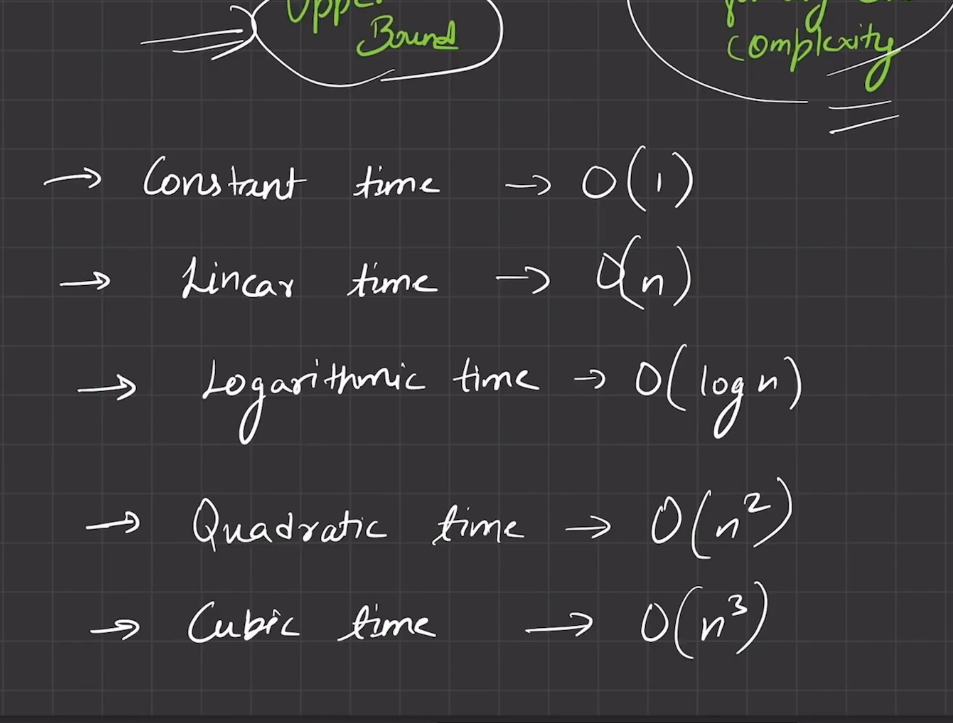 Upper
Bound
complexity
→ Constant time → O(1)
→ Linear time → O(n)
→ Logarithmic time → O(log n)
→ Quadratic time → O(n²)
→ Cubic time → O(n³)